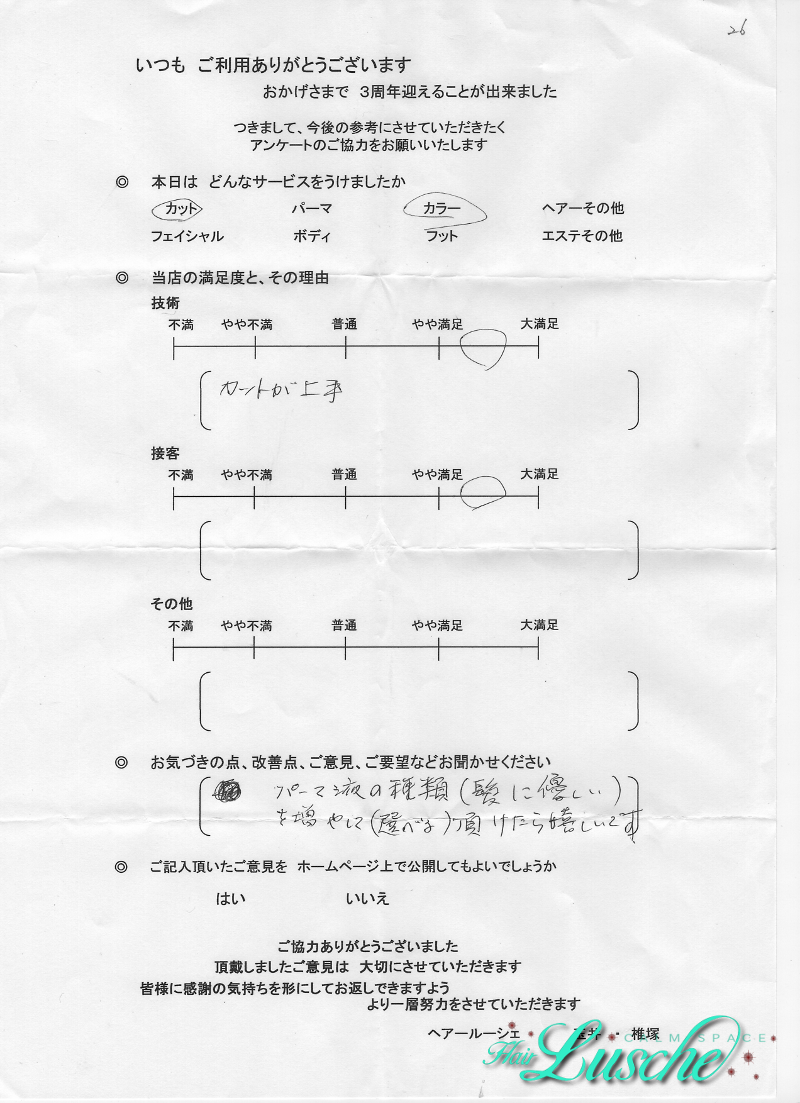 26
いつも ご利用ありがとうございます
おかげさまで 3周年迎えることが出来ました
つきまして、今後の参考にさせていただきたく
アンケートのご協力をお願いいたします
◎ 本日は どんなサービスをうけましたか
カット パーマ カラー ヘアーその他
フェイシャル ボディ フット エステその他
◎ 当店の満足度と、その理由
技術
不満 やや不満 普通 やや満足 大満足
カットが上手
接客
不満 やや不満 普通 やや満足 大満足
その他
不満 やや不満 普通 やや満足 大満足
◎ お気づきの点、改善点、ご意見、ご要望などお聞かせください
パーマ液の種類(髪に優しい)
を増やして(選べる)頂けたら嬉しいです
◎ ご記入頂いたご意見を ホームページ上で公開してもよいでしょうか
はい いいえ
ご協力ありがとうございました
頂戴しましたご意見は 大切にさせていただきます
皆様に感謝の気持ちを形にしてお返しできますよう
より一層努力をさせていただきます
ヘアールーシェ ・ 椎塚
CALM SPACE
Hair Lusche